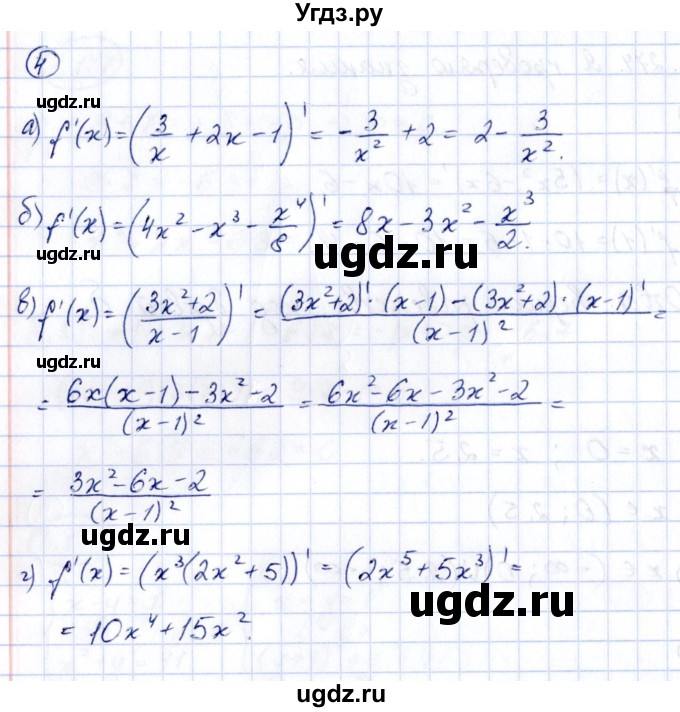 Угдз.ру
4
а) f'(x) = (3/x + 2x - 1)' = -3/x² + 2 = 2 - 3/x².
ugdz.ru
ugdz.ru
б) f'(x) = (4x² - x³ - x⁴/8)' = 8x - 3x² - x³/2.
ugdz.ru
ugdz.ru
в) f'(x) = ((3x²+2)/(x-1))' = ((3x²+2)'·(x-1) - (3x²+2)·(x-1)')/(x-1)² =
ugdz.ru
= (6x(x-1) - 3x² - 2)/(x-1)² = (6x² - 6x - 3x² - 2)/(x-1)² =
= (3x² - 6x - 2)/(x-1)²
ugdz.ru
ugdz.ru
г) f'(x) = (x³(2x²+5))' = (2x⁵ + 5x³)' =
ugdz.ru
= 10x⁴ + 15x².
ugdz.ru
ugdz.ru